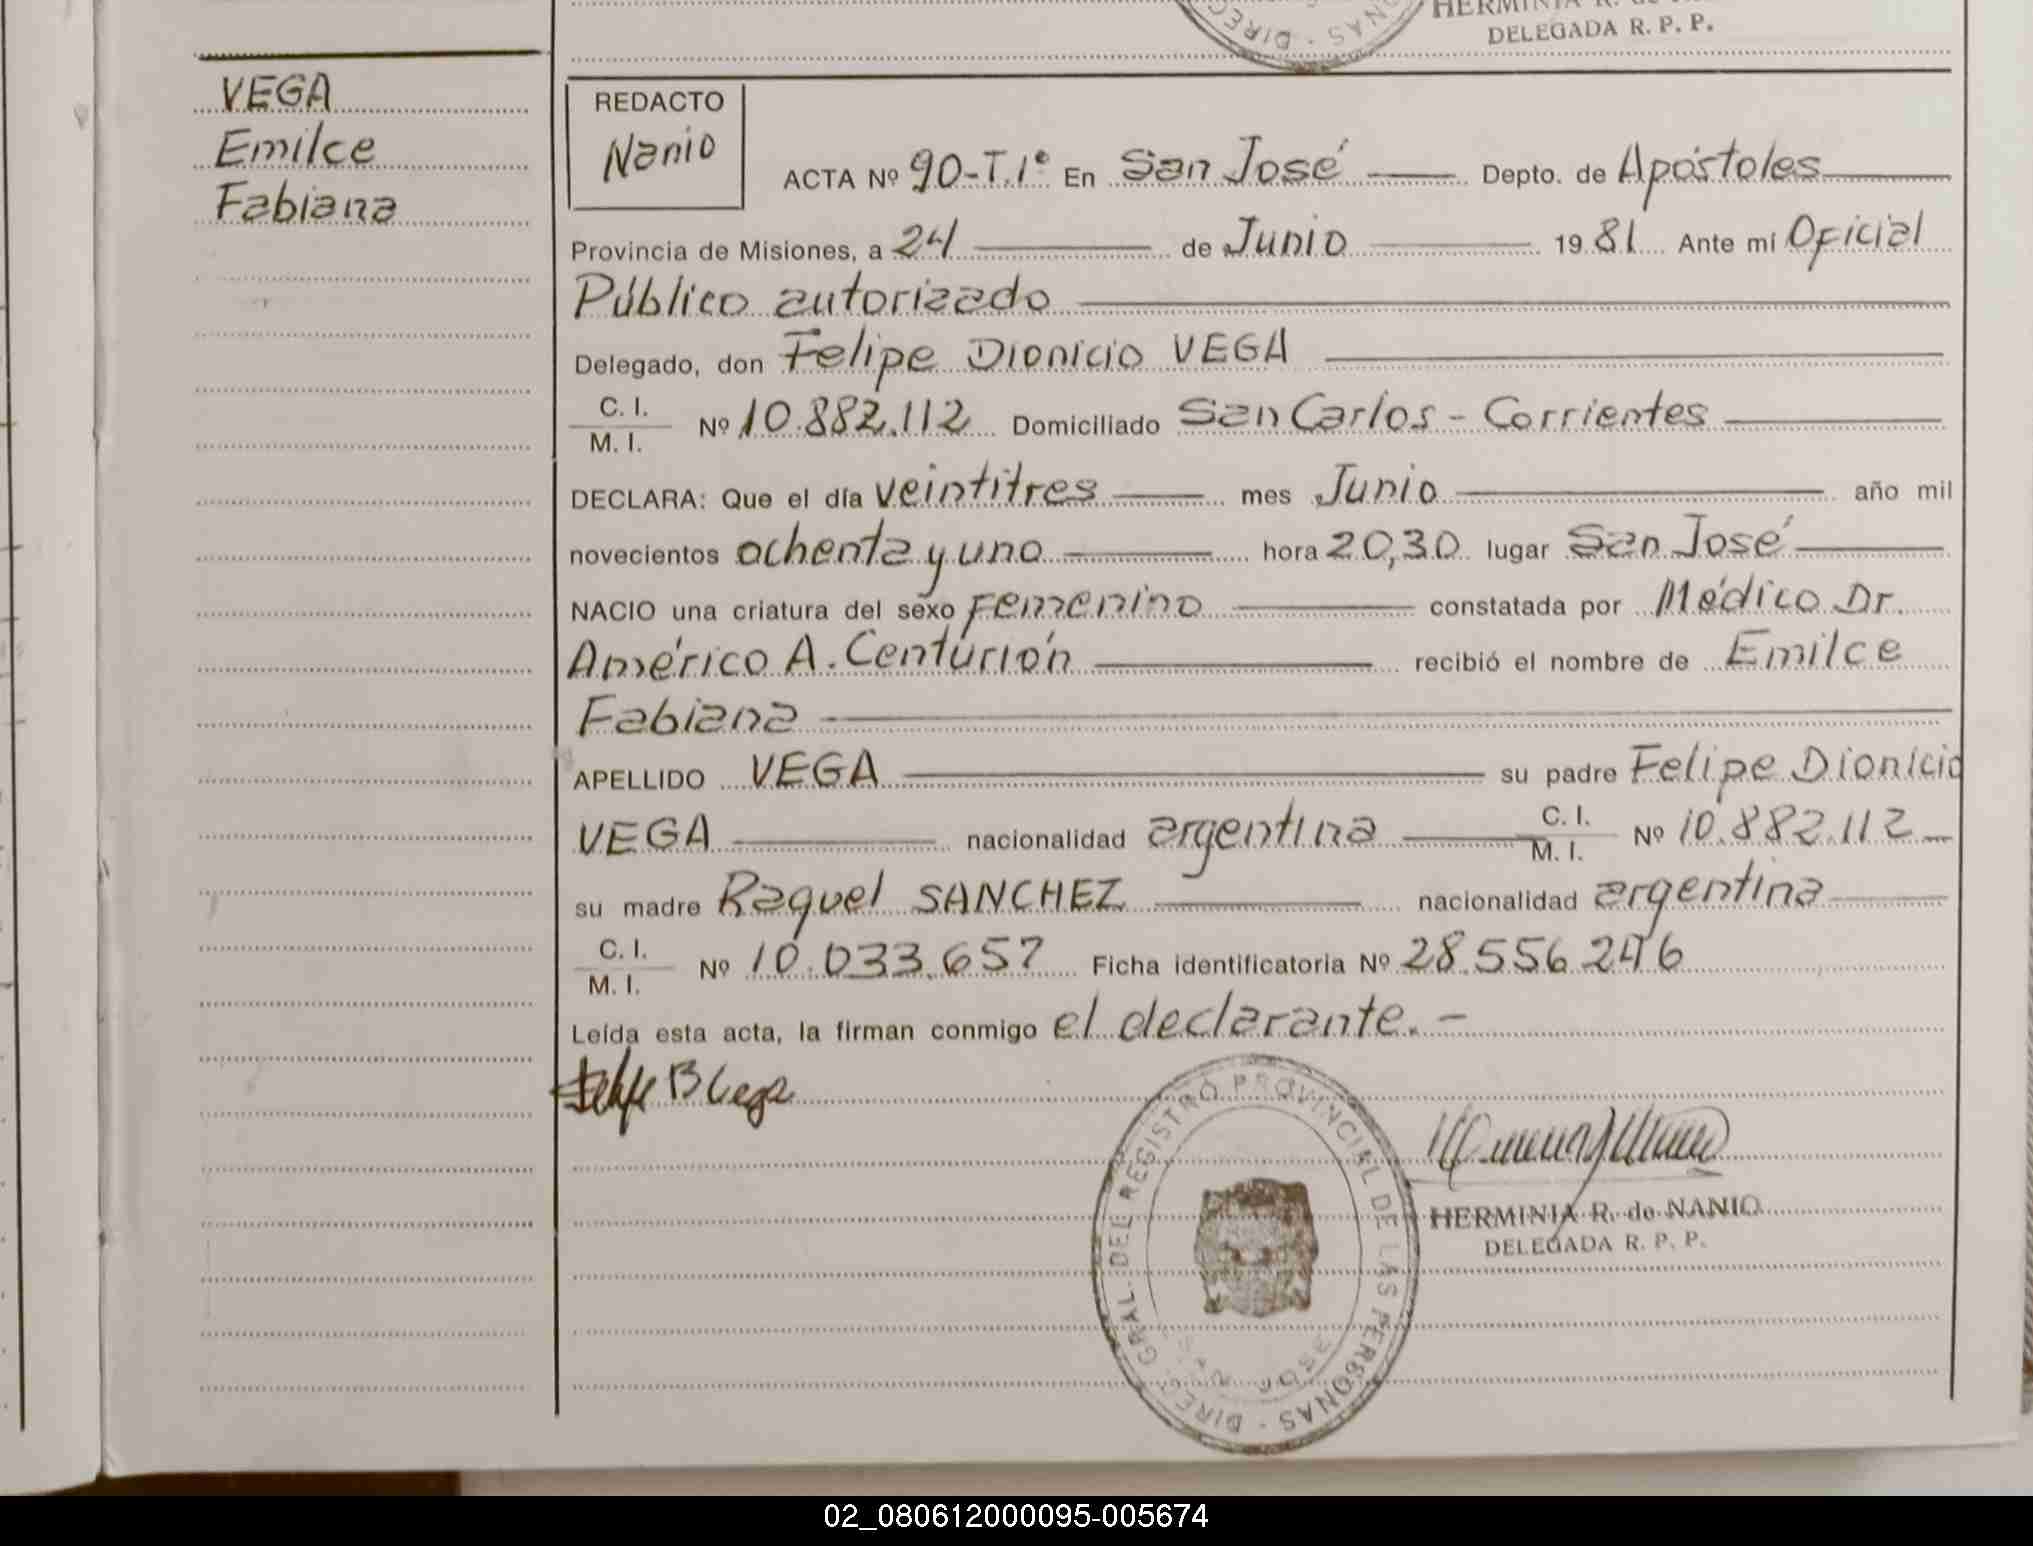 HERMINIA R. de
DELEGADA R. P. P.
NAS - DIREC
VEGA
Emilce
Fabiana
REDACTO
Nanio
ACTA Nº 90-T.1º En San José Depto. de Apóstoles
Provincia de Misiones, a 24 de Junio 1981 Ante mí Oficial
Público autorizado
Delegado, don Felipe Dionicio VEGA
C. I.
M. I. Nº 10.882.112 Domiciliado San Carlos - Corrientes
DECLARA: Que el día veintitres mes Junio año mil
novecientos ochenta y uno hora 20,30 lugar San José
NACIO una criatura del sexo Femenino constatada por Médico Dr.
Américo A. Centurión recibió el nombre de Emilce
Fabiana
APELLIDO VEGA su padre Felipe Dionicio
VEGA nacionalidad argentina C. I. M. I. Nº 10.882.112
su madre Raquel SANCHEZ nacionalidad argentina
C. I.
M. I. Nº 10.033.657 Ficha identificatoria Nº 28.556.246
Leída esta acta, la firman conmigo el declarante. -
Felipe B Vega
DIREC. GRAL. DEL REGISTRO PROVINCIAL DE LAS PERSONAS
SAN JOSE
HERMINIA R. de NANIO
DELEGADA R. P. P.
02_080612000095-005674